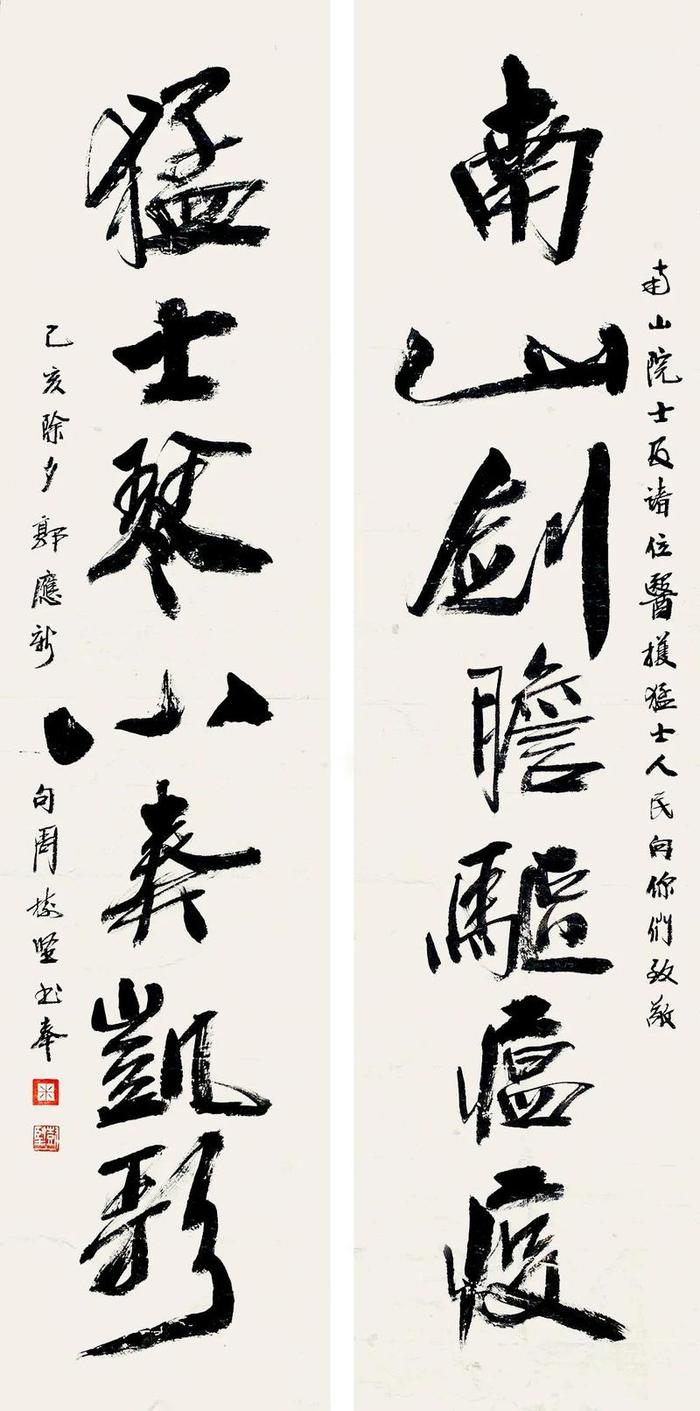 南山院士及諸位醫護猛士人民向你們致敬
南山劍膽驅瘟疫
猛士琴心奏凱歌
己亥除夕郭應新句周堅書奉